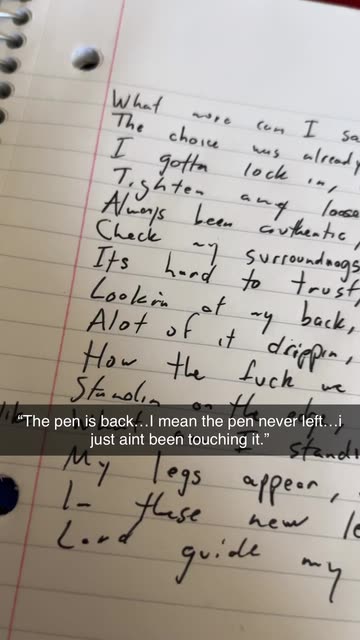 What more can I sa
The choice was already
I gotta lock in,
Tighten any loose
Always been authentic,
Check my surroundings
Its hard to trust
Lookin at my back,
Alot of it drippin,
How the fuck we
Standin on the edge,
like I standi
"The pen is back…I mean the pen never left…i
just aint been touching it."
My legs appear,
In these new le
Lord guide my